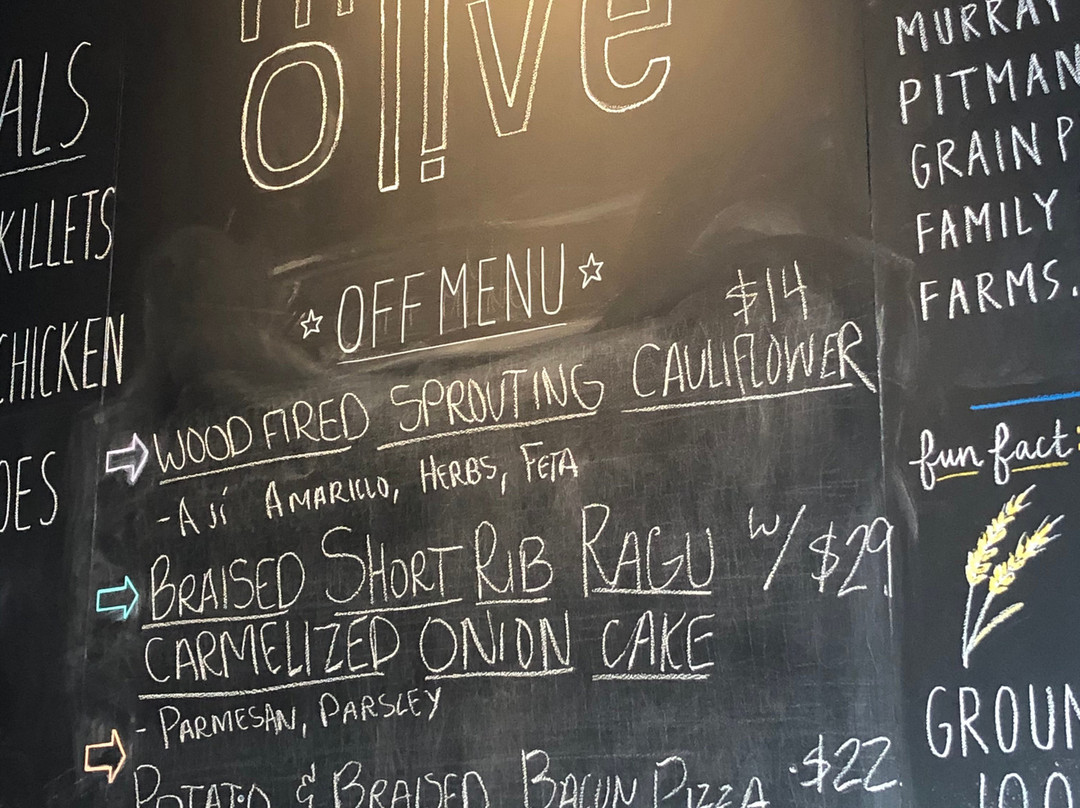 ALS
KILLETS
CHICKEN
OES
ol!ve
☆ OFF MENU ☆
$14
WOOD FIRED SPROUTING CAULIFLOWER
- Ají AMARILLO, HERBS, FETA
BRAISED SHORT RIB RAGU W/ $29
CARMELIZED ONION CAKE
- PARMESAN, PARSLEY
POTATO & BRAISED BACON PIZZA $22
MURRAY
PITMAN
GRAIN P
FAMILY
FARMS.
fun fact:
GROUN
100